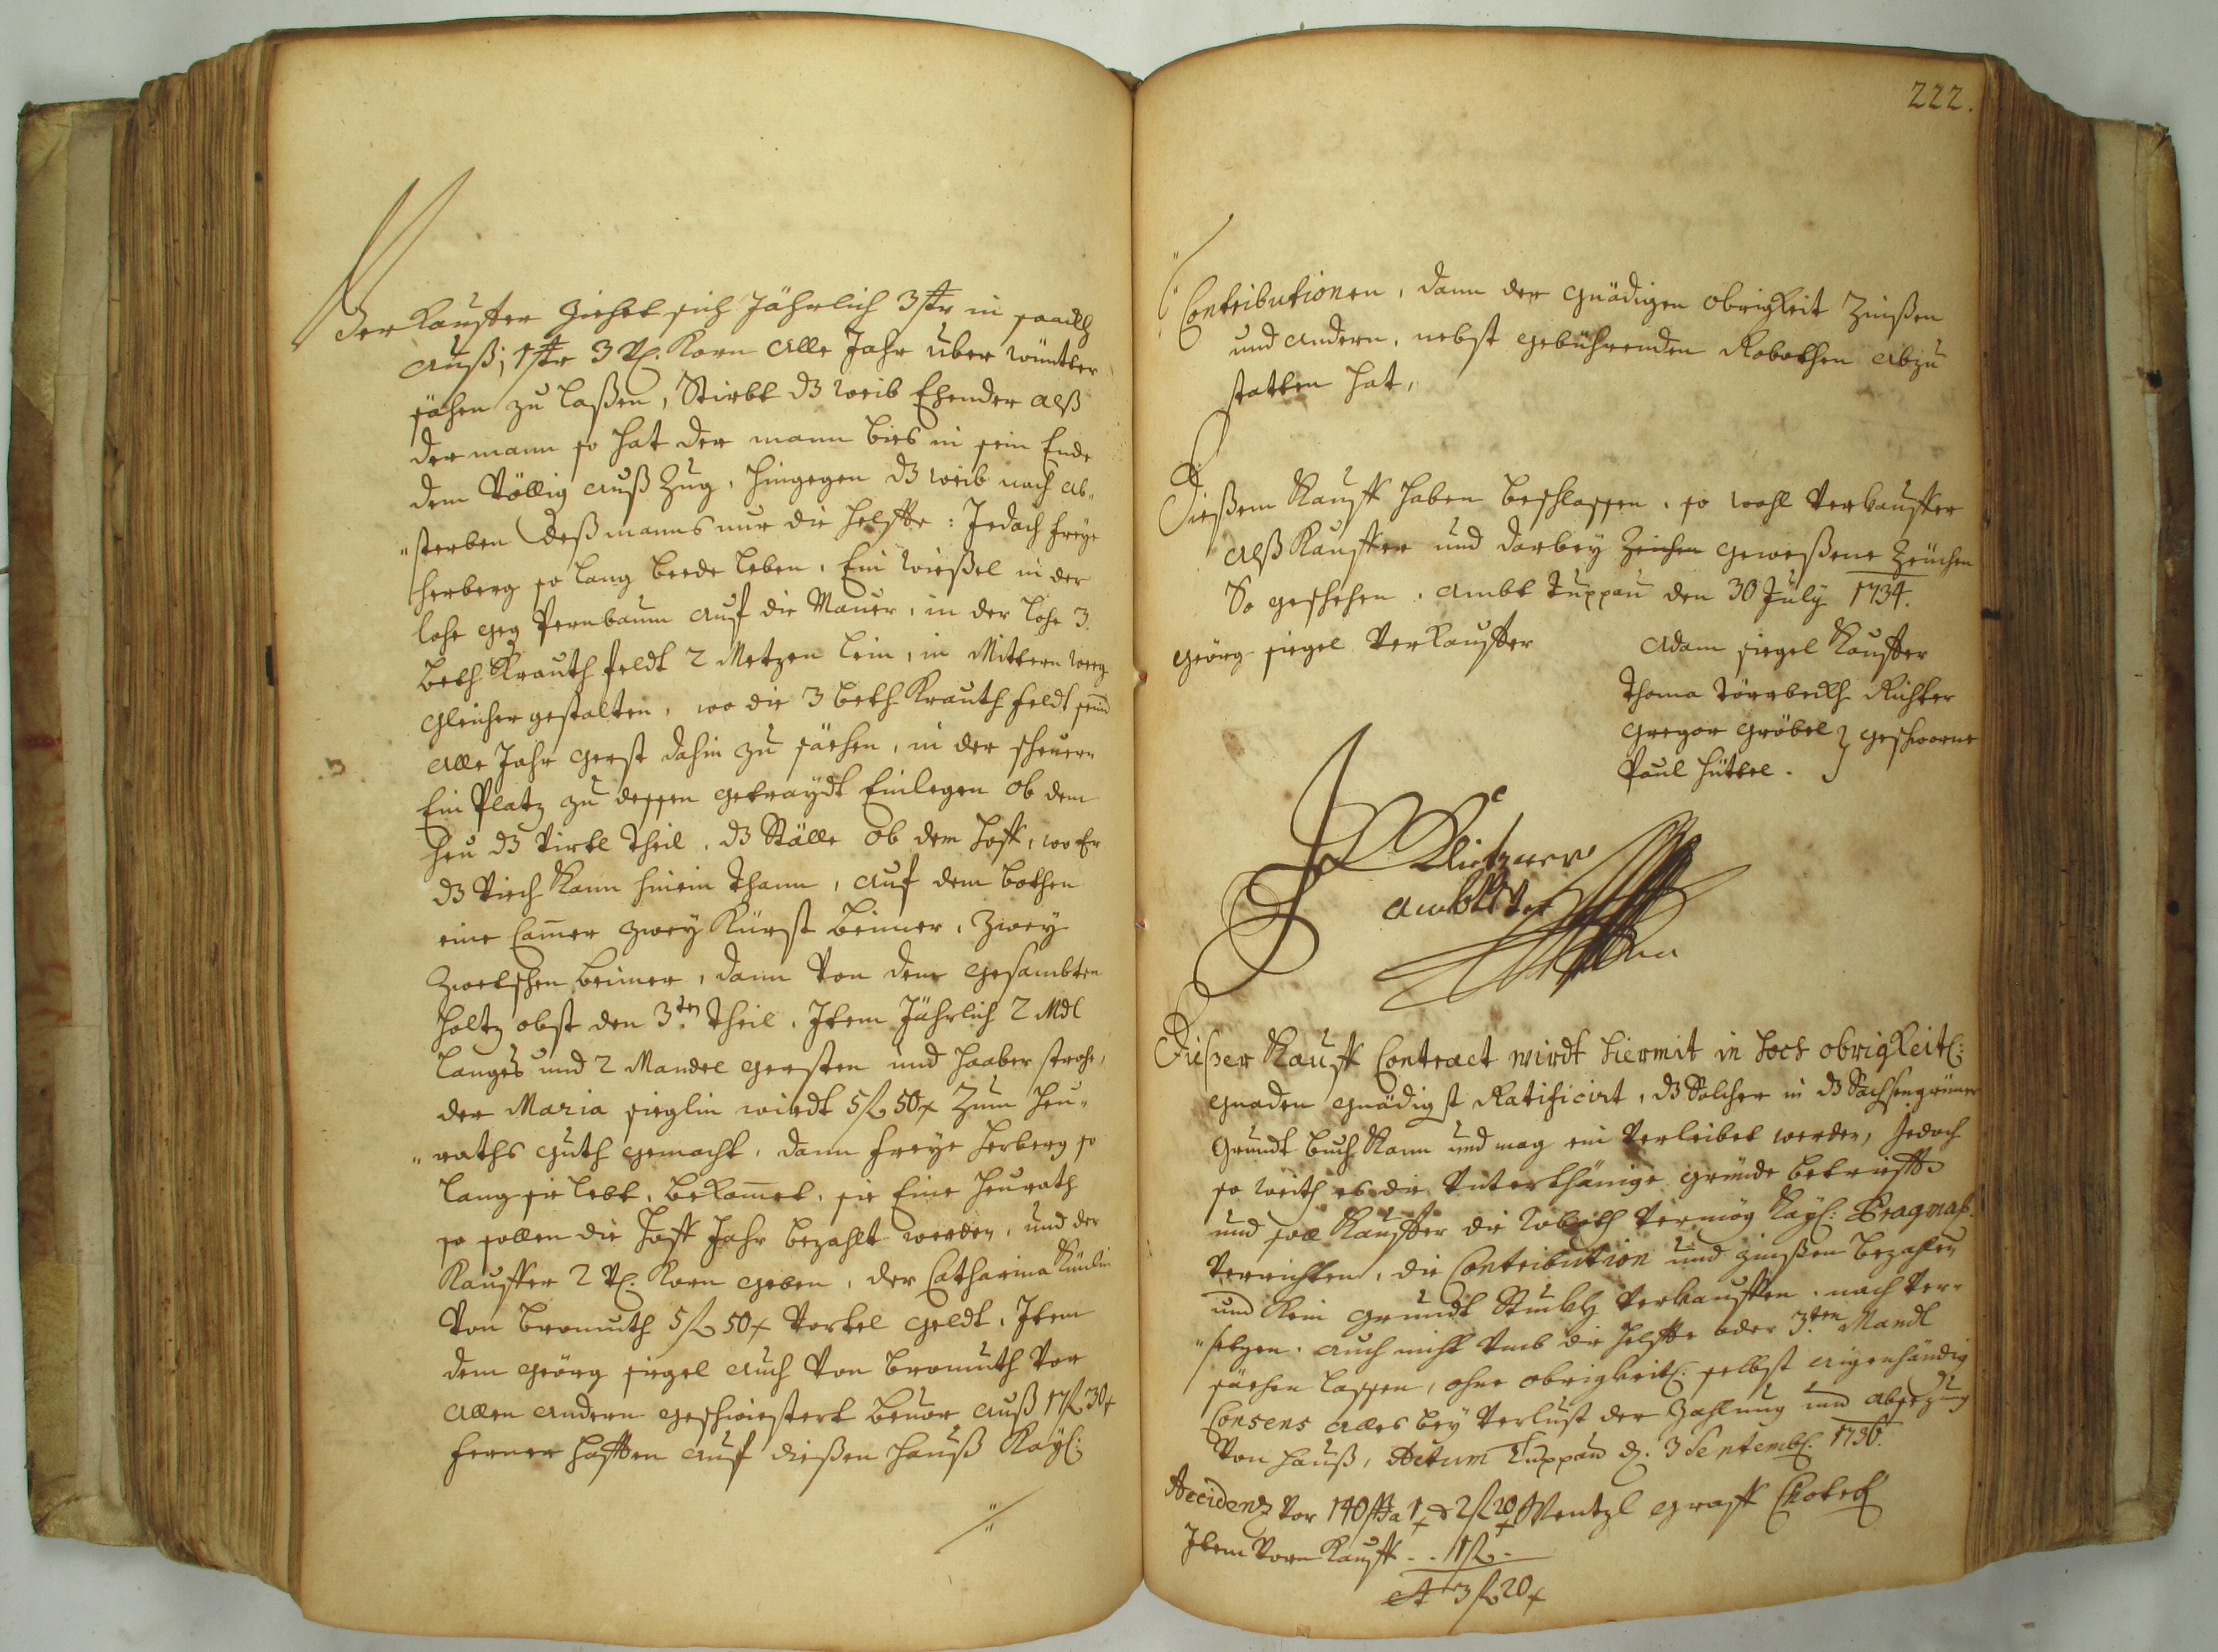 Verkauffer ziehet sich Jährlich 3 str in
auß; 1 str 3 Korn alle Jahr über wintter
sähen zu laßen, Stirbt dz weib Ehender alß
der mann so hat der mann bies in sein Ende
dem Völlig auß Zug, hingegen dz weib nach ab„
„sterben deß manns nur die helffte: Jedoch freye
herberg so lang beede leben, Ein wießel in der
lohe geg Pernbaum auf die Mauer, in der lohe 3.
beth Krauth feldt 2 Metzen lein, in Mittern weeg
gleicher gestalten, wo die 3 beth Krauth feldt seind
alle Jahr gerst dahin zu säehen, in der scheuern
Ein Platz zu dessen getraydt Einlegen ob dem
heu dz Virtl theil, dz Ställe ob dem hoff, wo Er
dz Viech Kann hinein thann, auf dem bothen
eine Cam̄er zwey Kürst beimer, Zwey
Zwetschen beimer, dann Von dem gesambten
holtz obst den 3ten theil, Item Jährlich 2 Mdl
langes und 2 Mandel gersten und haaber strohe,
der Maria sieglin wirdt 5 fl 50 x Zum heu„
„raths guth gemacht, dann freye herberg so
lang sie lebt, bekom̄et, sie Eine heurath
so sollen die hoff Jahr bezahlt werden, und der
Kauffer 2 Korn geben, der Catharina
Von bromuth 5 fl 50 x Vortel geldt, Item
dem Geörg siegel auch Von bromuth Vor
allen andern geschwiestert beuor auß 17 fl 30 x
ferner hafften auf dießen Hauß Kayl:
222.
Contributionen, dann der gnädigen obrigkeit Zinßen
und andern, nebst gebührenden Robothen abzu
statten hat,
Dießem Kauff haben beschlossen, so wohl Verkauffer
alß Kauffer und darbey Zeichen geweßene Zeüchen
So geschehen, ambt Tuppau den 30 July 1734.
Geörg siegel Verkauffer
Adam siegel Kauffer
Thoma Richter
Gregor Gröbel } geschworne
Paul hüttel.
Dießer Kauff Contract wirdt hiermit in hoch obrigkeitl:
gnaden gnädigst Ratificirt, dz Solcher in dz Sachsengrüner
Grundt buch Kann und mag ein Verleibet werden, Jedoch
so weith es die Vnterthänige gründe betriefft
und soll Kauffer die Roboth Vermög Kayl: Pragmat:
Verrichten, die Contribution und zinßen bezahlen
und Kein grundt Stuckh Verkauffen, nach Ver„
„setzen, auch nicht Vmb die helffte oder 3ten Mandl
säehen lassen, ohne obrigkeitl: selbst aigenhändig
Consens alles bey Verlust der Zahlung und absezung
Von Hauß, Actum Tuppau d: 3 Septembl: 1736.
Accidenz Vor 140 ß a 1 x 2 fl 20 x Wentzl Graff Chotek
Item Vorn Kauff - - 1 fl -
3 fl 20 x